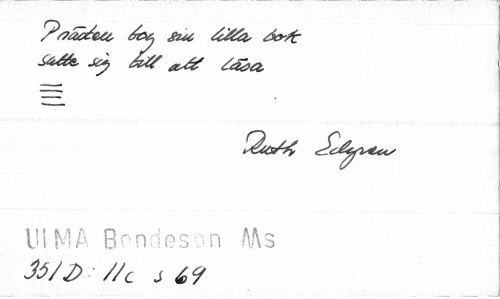 Prästen tog sin lilla bok
satte sig till att läsa
Ruth Edgren
ULMA Bondeson Ms
351 D: 11c s 69